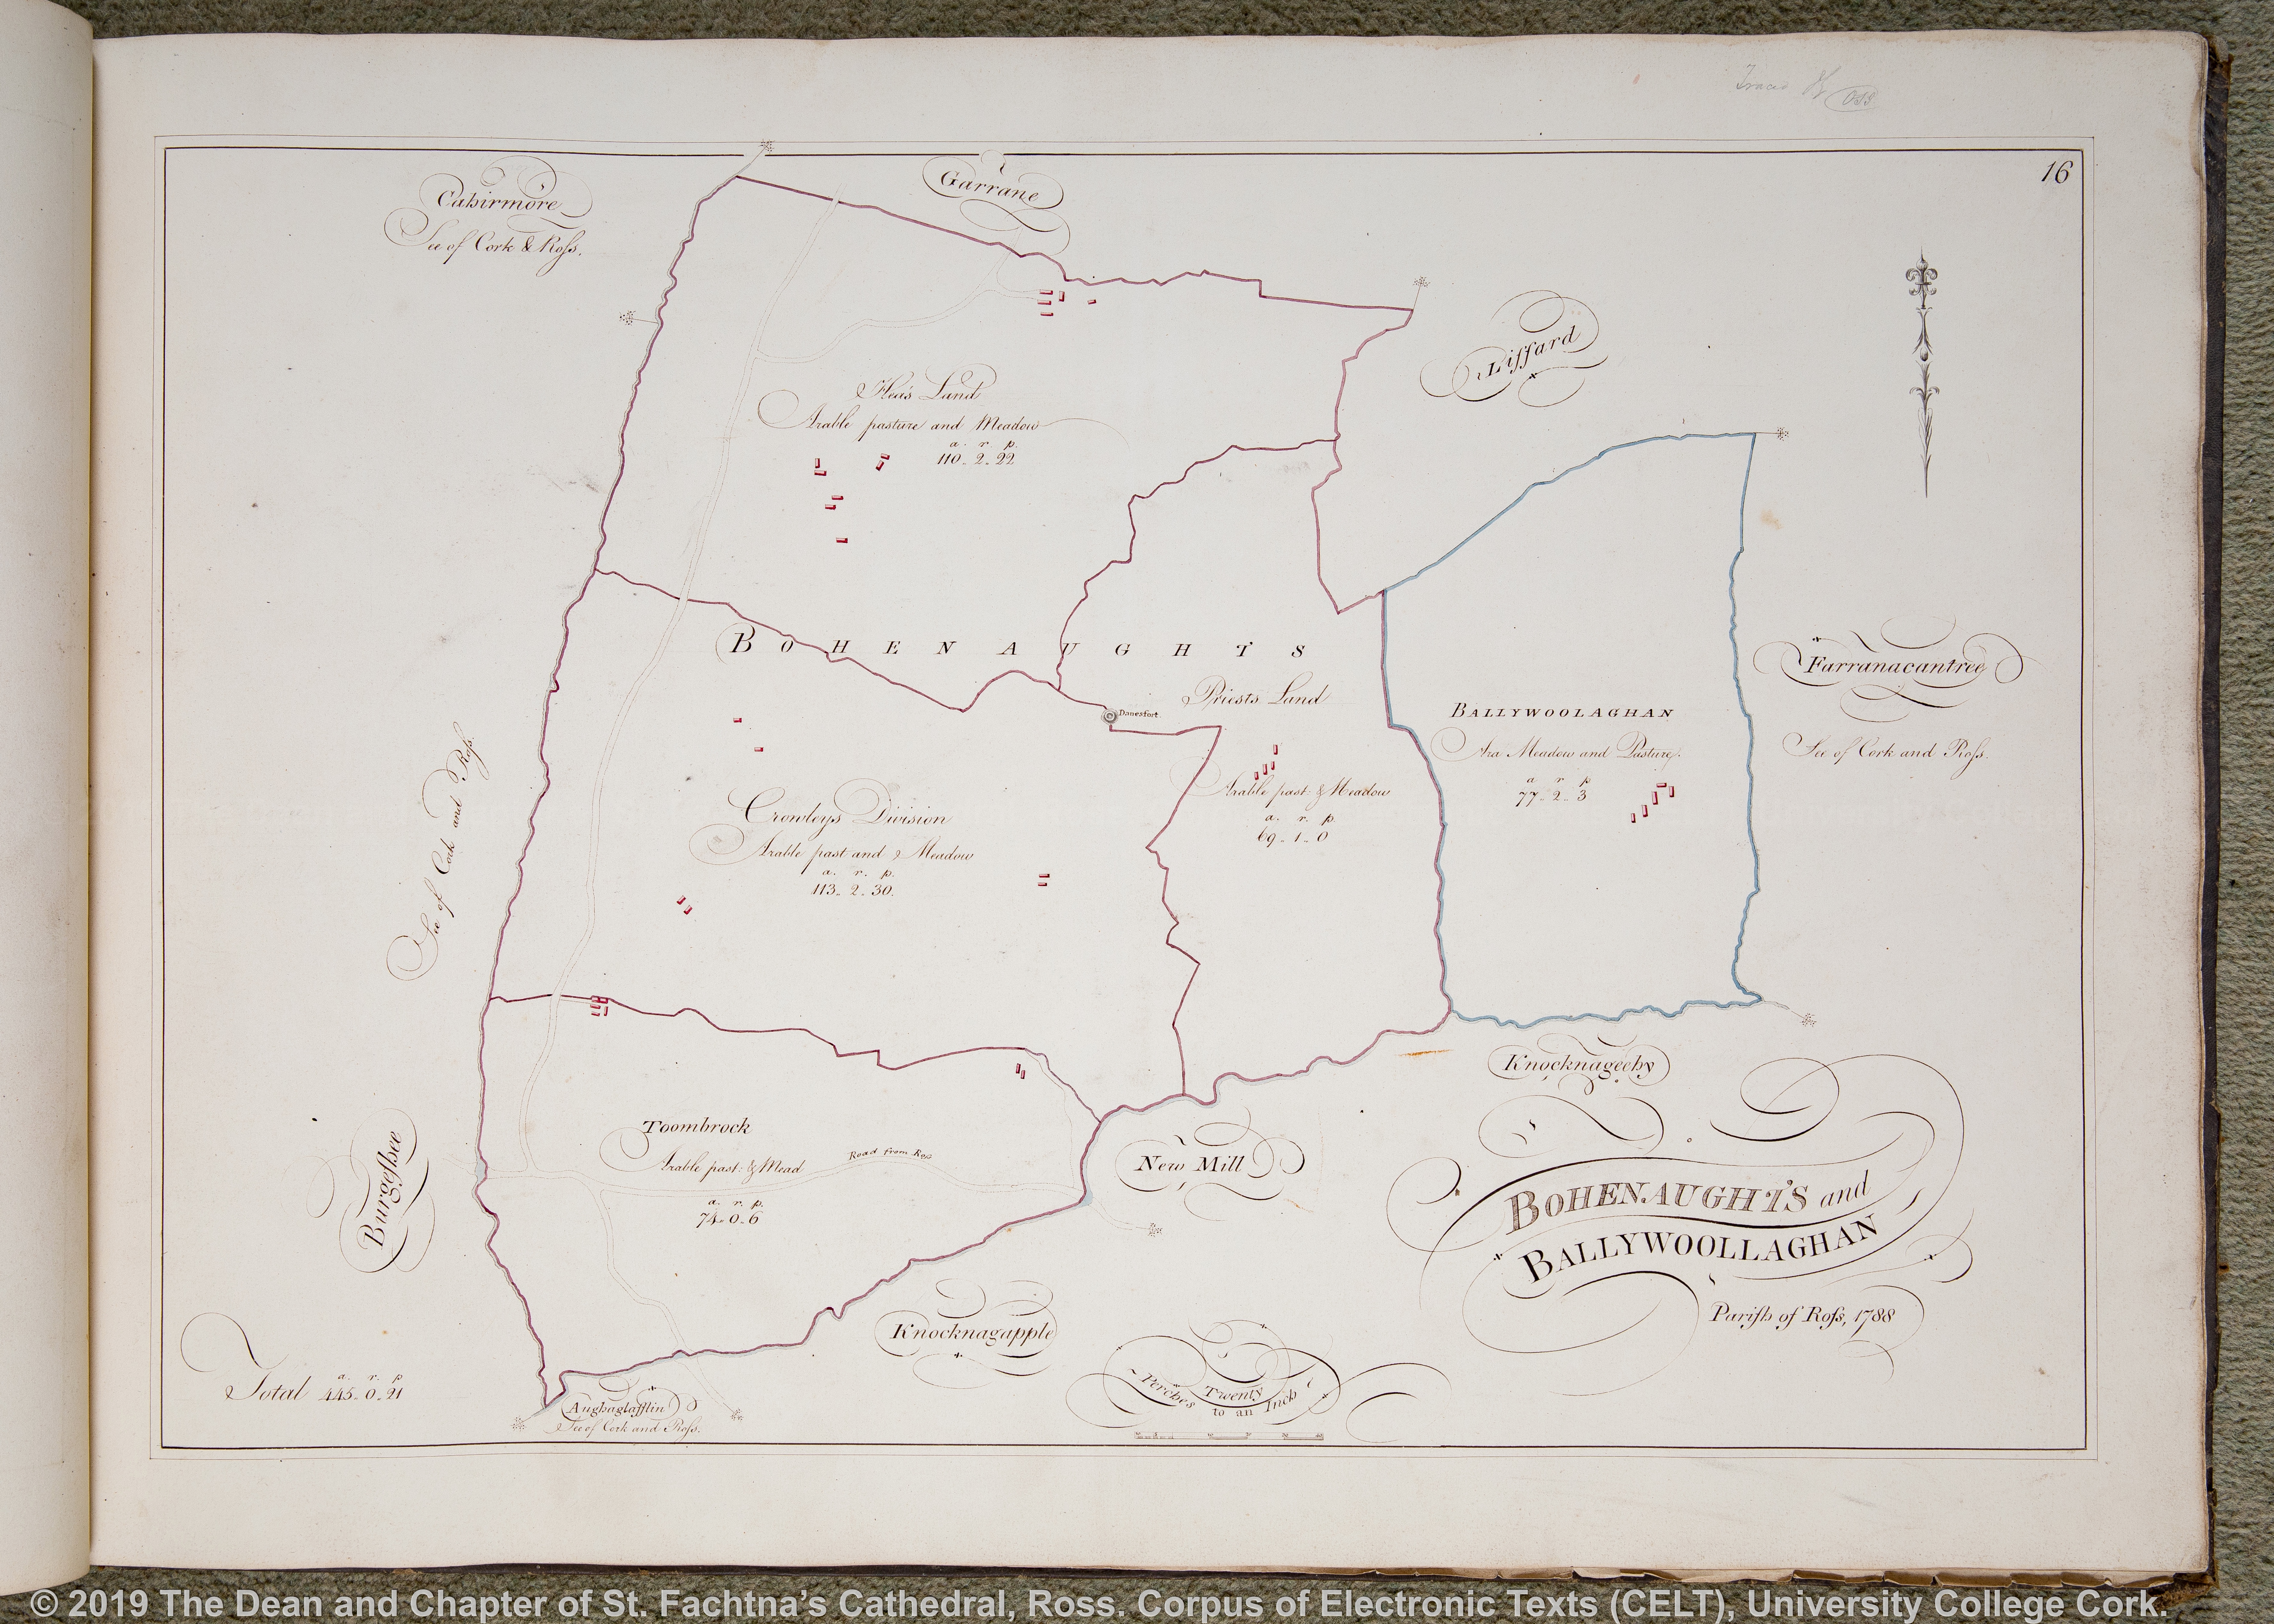 Traced
OSS
16
Cahirmore
See of Cork & Roſs.
Garrane
Liſſard
Hea's Land
Arable pasture and Meadow
a. r. p.
110. 2. 22
BOHENAUGHTS
Priests Land
Danesfort
Arable past: & Meadow
a. r. p.
69. 1. 0
BALLYWOOLAGHAN
Ara Meadow and Pasture.
a r p
77. 2. 3
Farranacantree
See of Cork and Roſs.
See of Cork and Roſs.
Crowleys Division
Arable past and & Meadow
a. r. p.
113. 2. 30.
Toombrock
Arable past: & Mead
a. r. p.
74. 0. 6
Road from Ross
Burgeſhee
New Mill
Knocknageehy
Knocknagapple
BOHENAUGHTS and
BALLYWOOLLAGHAN
Pariſh of Roſs, 1788
a. r. p
Total 445. 0. 21
Aughaglaſſlin
See of Cork and Roſs.
Perches Twenty
to an Inch
© 2019 The Dean and Chapter of St. Fachtna's Cathedral, Ross. Corpus of Electronic Texts (CELT), University College Cork.